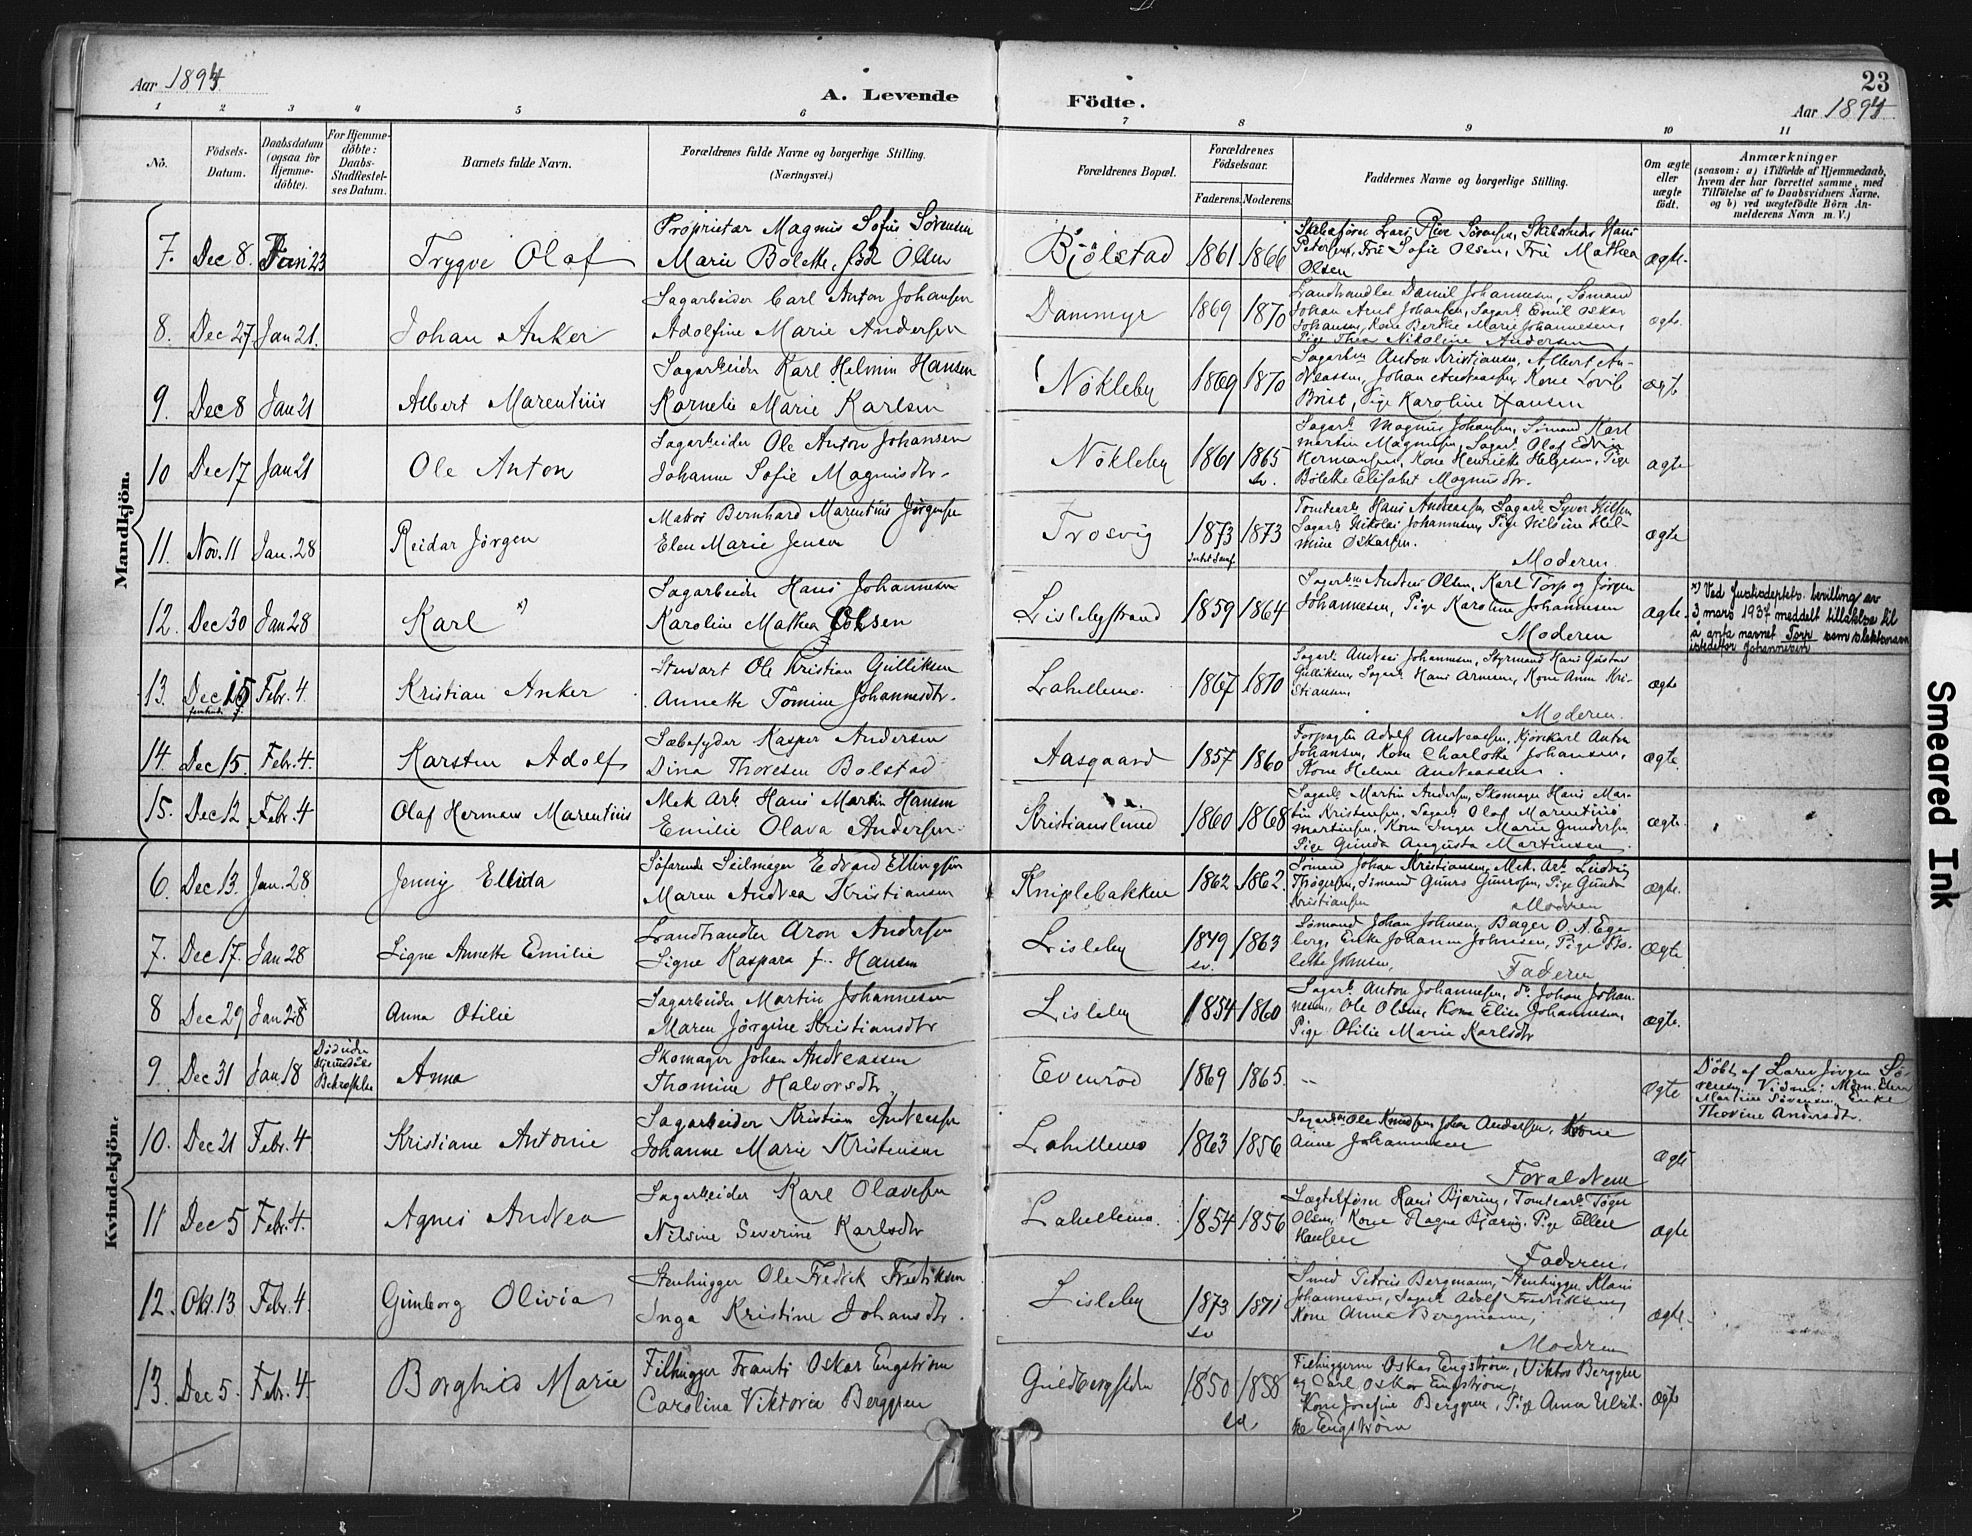 Aar 1894
A. Levende Födte.
23
Aar 1894
1 2 3 4 5 6 7 8 9 10 11
No.
Födsels-Datum.
Daabsdatum (ogsaa for Hjemme-döbte).
For Hjemme-döbte: Daabs-Stadfæstel-ses Datum.
Barnets fulde Navn.
Forældrenes fulde Navne og borgerlige Stilling. (Næringsvei.)
Forældrenes Bopæl.
Forældrenes Födselsaar.
Faderens. Moderens.
Faddernes Navne og borgerlige Stilling.
Om ægte eller uægte födt.
Anmærkninger
(saasom: a) i Tilfælde af Hjemmedaab, hvem der har forrettet samme, med Tilföielse af to Daabsvidners Navne, og b) ved uægtefödte Börn An-melderens Navn m. V.)
Mandkjön.
7. Dec 8. Jan 23 Trygve Olaf
Proprietær Magnus Sofus Sørensen
Marie Bolette, fød Olsen
Bjölstad 1861 1866
Petersen, Frü Sofie Olsen, Frü Mathea
Olsen
ægte.
8. Dec 27 Jan 21. Johan Anker
Sagarbeider Carl Anton Johansen
Adolfine Marie Andersen
Dammyr 1869 1870
Landhandler Daniel Johannesen, Sömand
Johan Arnt Johansen, Sagarb. Emil Oskar
Johansen, Kone Berthe Marie Johannesen,
Pige Thea Nikoline Andersen
ægte.
9. Dec 8 Jan 21 Albert Marentius
Sagarbeider Karl Helmin Hansen
Kornelie Marie Karlsen
Nökleby 1869 1870
Sagarbm Anton Kristiansen, Albert An-
dreassen, Johan Andreassen, Kone Lovise
Brist, Pige Karoline Hansen
ægte
10 Dec 17 Jan 21 Ole Anton
Sagarbeider Ole Anton Johansen
Johanne Sofie Magnusdtr.
Nökleby 1861 1865
sv.
Sagarb. Magnus Johansen, Sömand Karl
Martin Magnusen, Sagarb. Olaf Edvin
Hermansen, Kone Henriette Helgesen, Pige
Bolette Elisabet Magnusdtr.
ægte
11. Nov. 11 Jan. 28 Reidar Jörgen
Matros Bernhard Marentius Jörgensen
Elen Marie Jensen
Trosvig 1873 1873
Tomtearb. Hans Andreassen, Sagarb. Syver Nilsen
Sagarb. Nikolai Johannesen, Pige Nilsine Hel-
mine Oskarsen.
Moderen
ægte
12. Dec 30 Jan 28 Karl x)
Sagarbeider Hans Johannesen
Karoline Mathea Olsen
Lislebystrand 1859 1864
Sagarbm Andreas Olsen, Karl Torp og Jörgen
Johannesen, Pige Karoline Johannesen
Moderen
ægte.
x) Ved Justisdeptets. bevilling av
3 mars 1937 meddelt tillatelse til
å anta navnet Torp som slektsnavn
istedetfor Johannesen
13. Dec 15 Febr. 4. Kristian Anker
Stuvart Ole Kristian Gulliksen
Annette Tomine Johannesdtr.
Lahellemo. 1867 1870
Sagarb. Andreas Johannesen, Styrmand Hans Gustav
Gulliksen, Sagarb. Hans Arnesen, Kone Anne Kri-
stiansen,
Moderen.
ægte
14. Dec 15. Febr. 4. Karsten Adolf
Sæbesyder Kasper Andersen
Dina Thoresen Bolstad
Aasgaard 1857 1860
Forpagter Adolf Andreassen, Kjörekarl Anton
Johansen, Kone Charlotte Johansen,
Kone Helene Andreassen.
ægte.
15. Dec 12. Febr. 4 Olaf Herman Marentius
Mek Arb. Hans Martin Hansen
Emilie Olava Andersen.
Kristianslund 1860 1868
Sagarb. Martin Andersen, Skomager Hans Mar-
tin Kristensen, Sagarb. Olaf Marentinus
Martinsen, Kone Inger Marie Gundersen,
Pige Gunda Augusta Martinsen.
ægte.
Kvindekjön.
6. Dec 13. Jan. 28 Jenny Ellida
Söfarende Seilmager Edvard Ellingsen
Maren Andrea Kristiansen
Kniplebakken 1862 1862.
Sömand Johan Kristiansen, Mek. Arb. Ludvig
Thögersen, Sömand Gunro Gunrosen, Pige Gunda
Kristiansen
Moderen
ægte.
7. Dec 17. Jan 28 Signe Annette Emilie
Landhandler Aron Andersen
Signe Kaspara f. Hansen
Lisleby 1849 1863
sv.
Sömand Johan Johnsen, Bager O. A. Ege
berg, Enke Johanne Johnsen, Pige Bo-
lette Johnsen,
Faderen
Ægte.
8 Dec 29 Jan 28 Anna Otilie
Sagarbeider Martin Johannesen
Maren Jörgine Kristiansdtr
Lisleby 1854 1860
Sagarb. Anton Johannesen, do Johan Johan-
nesen, Ole Olsen, Kone Elise Johannesen,
Pige Otilie Marie Karlsdtr
ægte.
9. Dec 31 Jan 18 Anna
Död uden
Hjemmedåbs
Bekræftelse
Skomager Johan Andreassen
Thomine Halvorsdtr,
Evenröd 1869 1865.
--
Ægte
Döbt af Lars Jörgen Sö-
rensen. Vidner: Mdm. Elen
Martine Sörensen, Enke
Thorine Andersdtr.
10. Dec 21 Febr. 4 Kristiane Antonie
Sagarbeider Kristian Andreassen
Johanne Marie Kristensen
Lahellemo 1863 1856
Sagarbm Ole Knudsen, Johan Andersen, Kone
Anne Johannesen
Forældrene
Ægte
11 Dec 5 Febr. 4. Agnes Andrea
Sagarbeider Karl Olavesen
Nilsine Severine Karlsdtr
Lahellemo. 1854 1856
Lægtskförer Hans Bjæring, Tomtearb. Tøger
Olsen, Kone Ragna Bjæring, Pige Ellen
Hansen
Faderen.
ægte
12. Okt. 13 Febr. 4. Gunborg Olivia
Stenhugger Ole Fredrik Fredriksen
Inga Kristine Johansdtr.
Lisleby 1873 1871
sv
Smed Petrus Bergmann, Stenhugger Klaus
Johannesen, Sagarb. Adolf Fredriksen,
Kone Anna Bergmann,
Moderen
ægte.
13. Dec 5. Febr. 4. Borghild Marie
Filhugger Frants Oskar Engström
Carolina Viktoria Berggren
Guldbergsiden 1850 1858
Filhuggerne Oskar Engström, Viktor Berggren
og Carl Oskar Engström,
Kone Josefine Berggren, Pige Anna Ulrik-
ke Engström
ægte
Smeared Ink